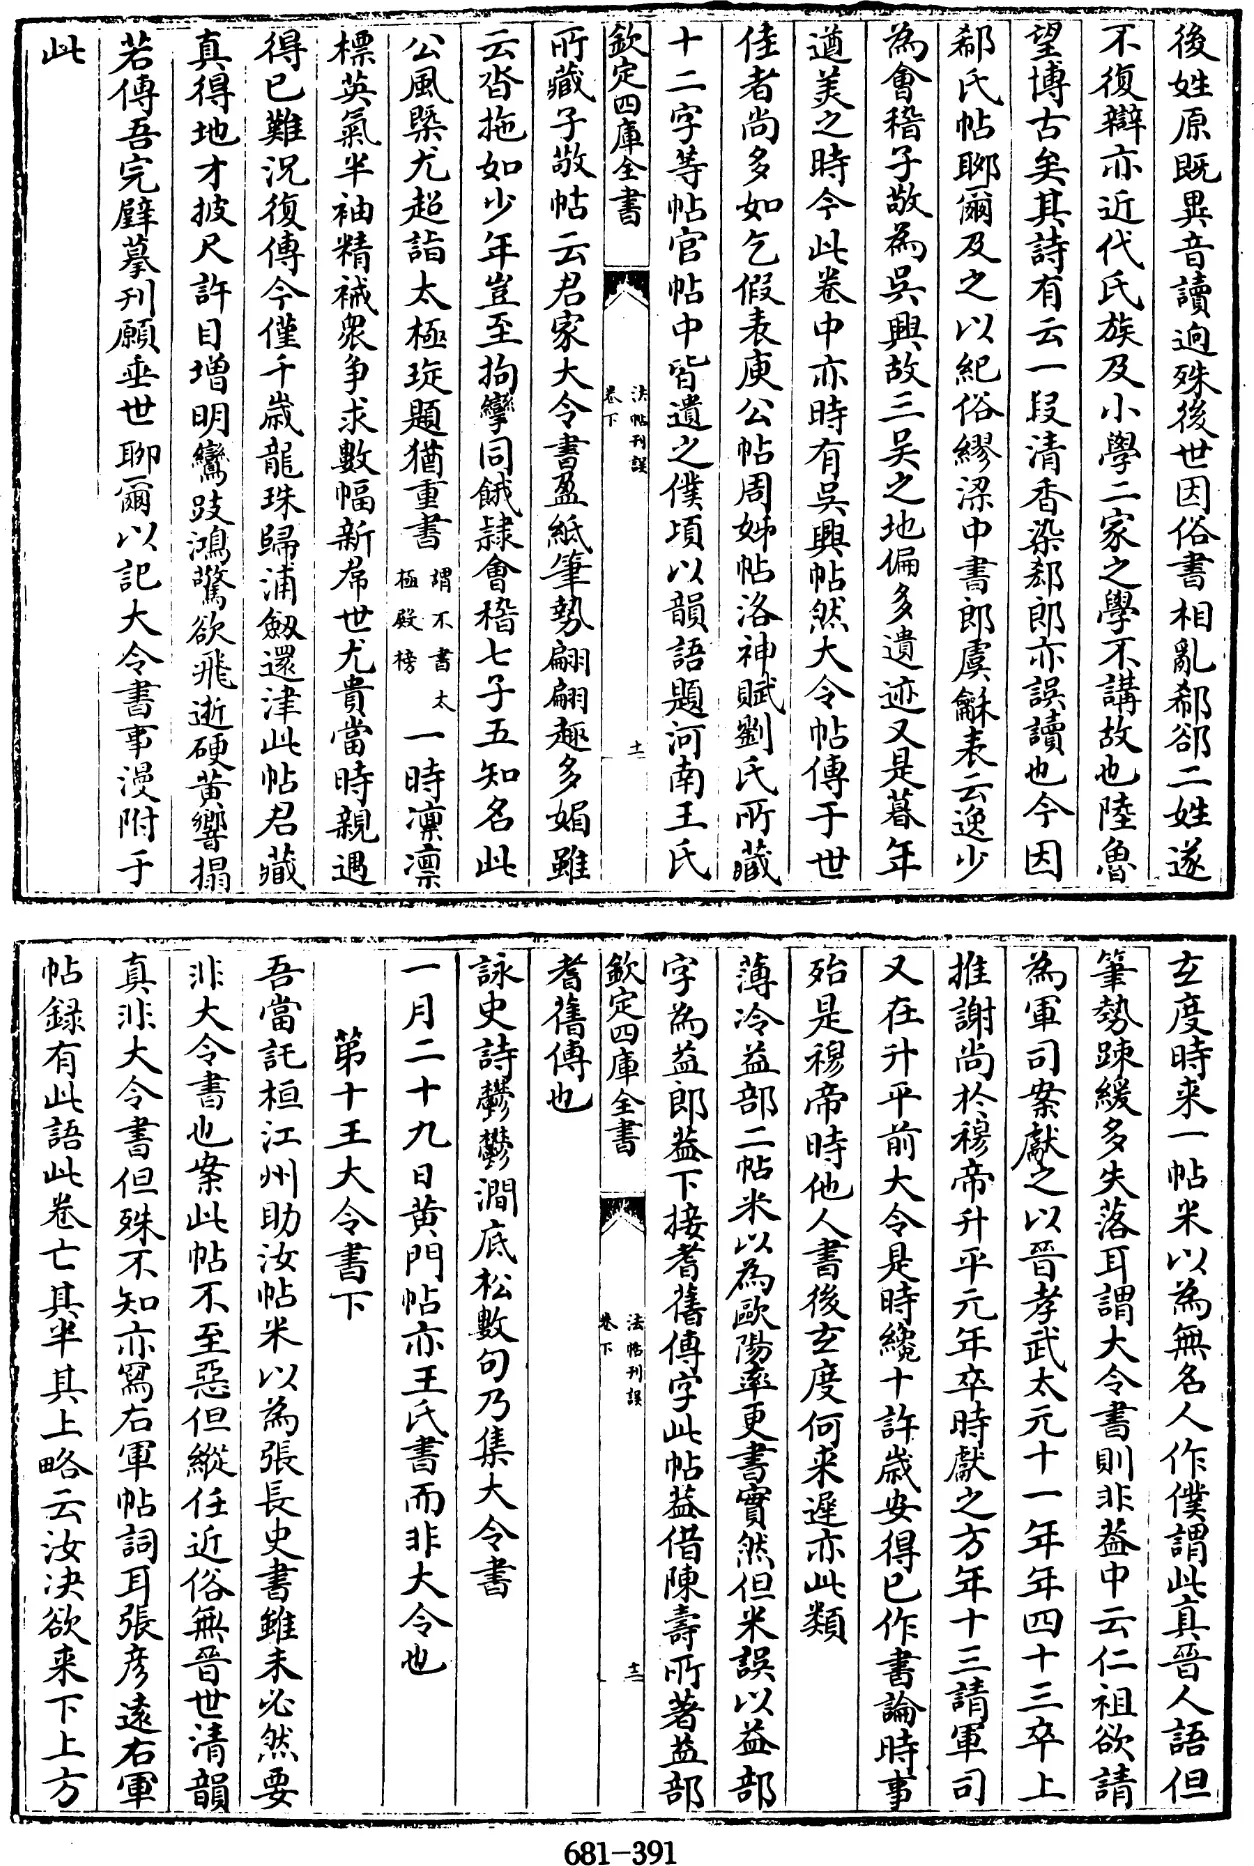 後姓原既異音讀逈殊後世因俗書相亂郗郤二姓遂
不復辯亦近代氏族及小學二家之學不講故也陸魯
望博古矣其詩有云一段清香染郄郎亦誤讀也今因
郗氏帖聊爾及之以紀俗繆梁中書郎虞龢表云逸少
為會稽子敬為吳興故三吳之地偏多遺迹又是暮年
遒美之時今此卷中亦時有吳興帖然大令帖傳于世
佳者尚多如乞假表庾公帖周姊帖洛神賦劉氏所藏
十二字等帖官帖中皆遺之僕頃以韻語題河南王氏
欽定四庫全書
法帖刋誤
卷下
十一
所藏子敬帖云君家大令書盈紙筆勢翩翩趣多媚雖
云沓拖如少年豈至拘攣同餓隸會稽七子五知名此
公風槩尤超詣太極琁題猶重書謂不書太極殿榜一時凛凛
標英氣半袖精裓衆争求數幅新帋世尤貴當時親遇
得已難況復傳今僅千歳龍珠歸浦劔還津此帖君藏
真得地才披尺許目增明鸞跂鴻驚欲飛逝硬黄響搨
若傳吾完璧摹刋願垂世聊爾以記大令書事漫附于
此
玄度時来一帖米以為無名人作僕謂此真晉人語但
筆勢踈緩多失落耳謂大令書則非葢中云仁祖欲請
為軍司案獻之以晉孝武太元十一年年四十三卒上
推謝尚於穆帝升平元年卒時獻之方年十三請軍司
又在升平前大令是時纔十許歳安得已作書論時事
殆是穆帝時他人書後玄度何来遲亦此類
薄冷益部二帖米以為歐陽率更書實然但米誤以益部
字為益郎葢下接耆舊傳字此帖葢借陳壽所著益部
欽定四庫全書
法帖刋誤
卷下
十二
耆舊傳也
詠史詩鬱鬱澗底松數句乃集大令書
一月二十九日黄門帖亦王氏書而非大令也
第十王大令書下
吾當託桓江州助汝帖米以為張長史書雖未必然要
非大令書也案此帖不至惡但縱任近俗無晉世清韻
真非大令書但殊不知亦寫右軍帖詞耳張彦遠右軍
帖録有此語此卷亡其半其上略云汝决欲来下上方
681-391